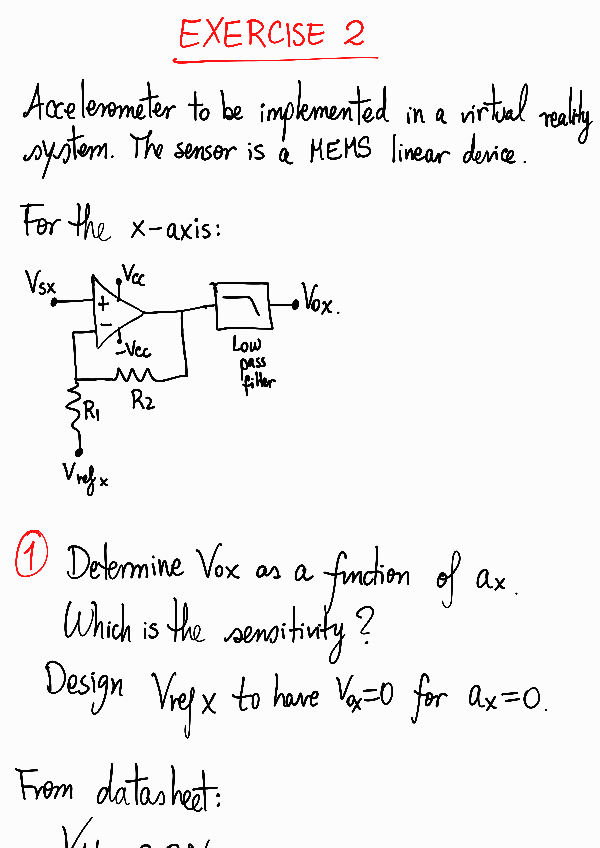 EXERCISE 2
Accelerometer to be implemented in a virtual reality
system. The sensor is a MEMS linear device.
For the x-axis:
Vsx
Vcc
+
-
-Vcc
R2
R1
Vref x
Low
pass
filter
Vox.
1 Determine Vox as a function of ax.
Which is the sensitivity?
Design Vref x to have Vox=0 for ax=0.
From datasheet: